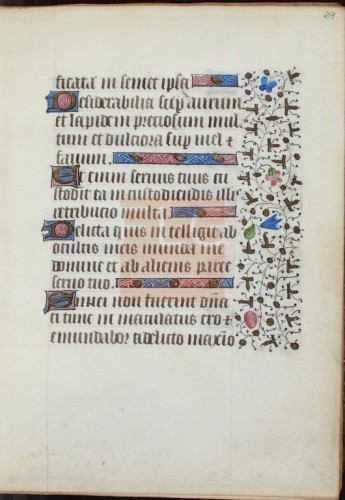 ficata in semet ipsa
Desiderabilia sup aurum
et lapidem preciosum mul
tum et dulciora sup mel &
fauum.
Et enim seruus tuus cu
stodit ea in custodiendis illis
retribucio multa
Delicta quis intelligit ab
ocultis meis munda me
domine et ab alienis parce
seruo tuo.
Si mei non fuerint dña
ti tunc in maculatus ero &
emundabor a delicto maxio